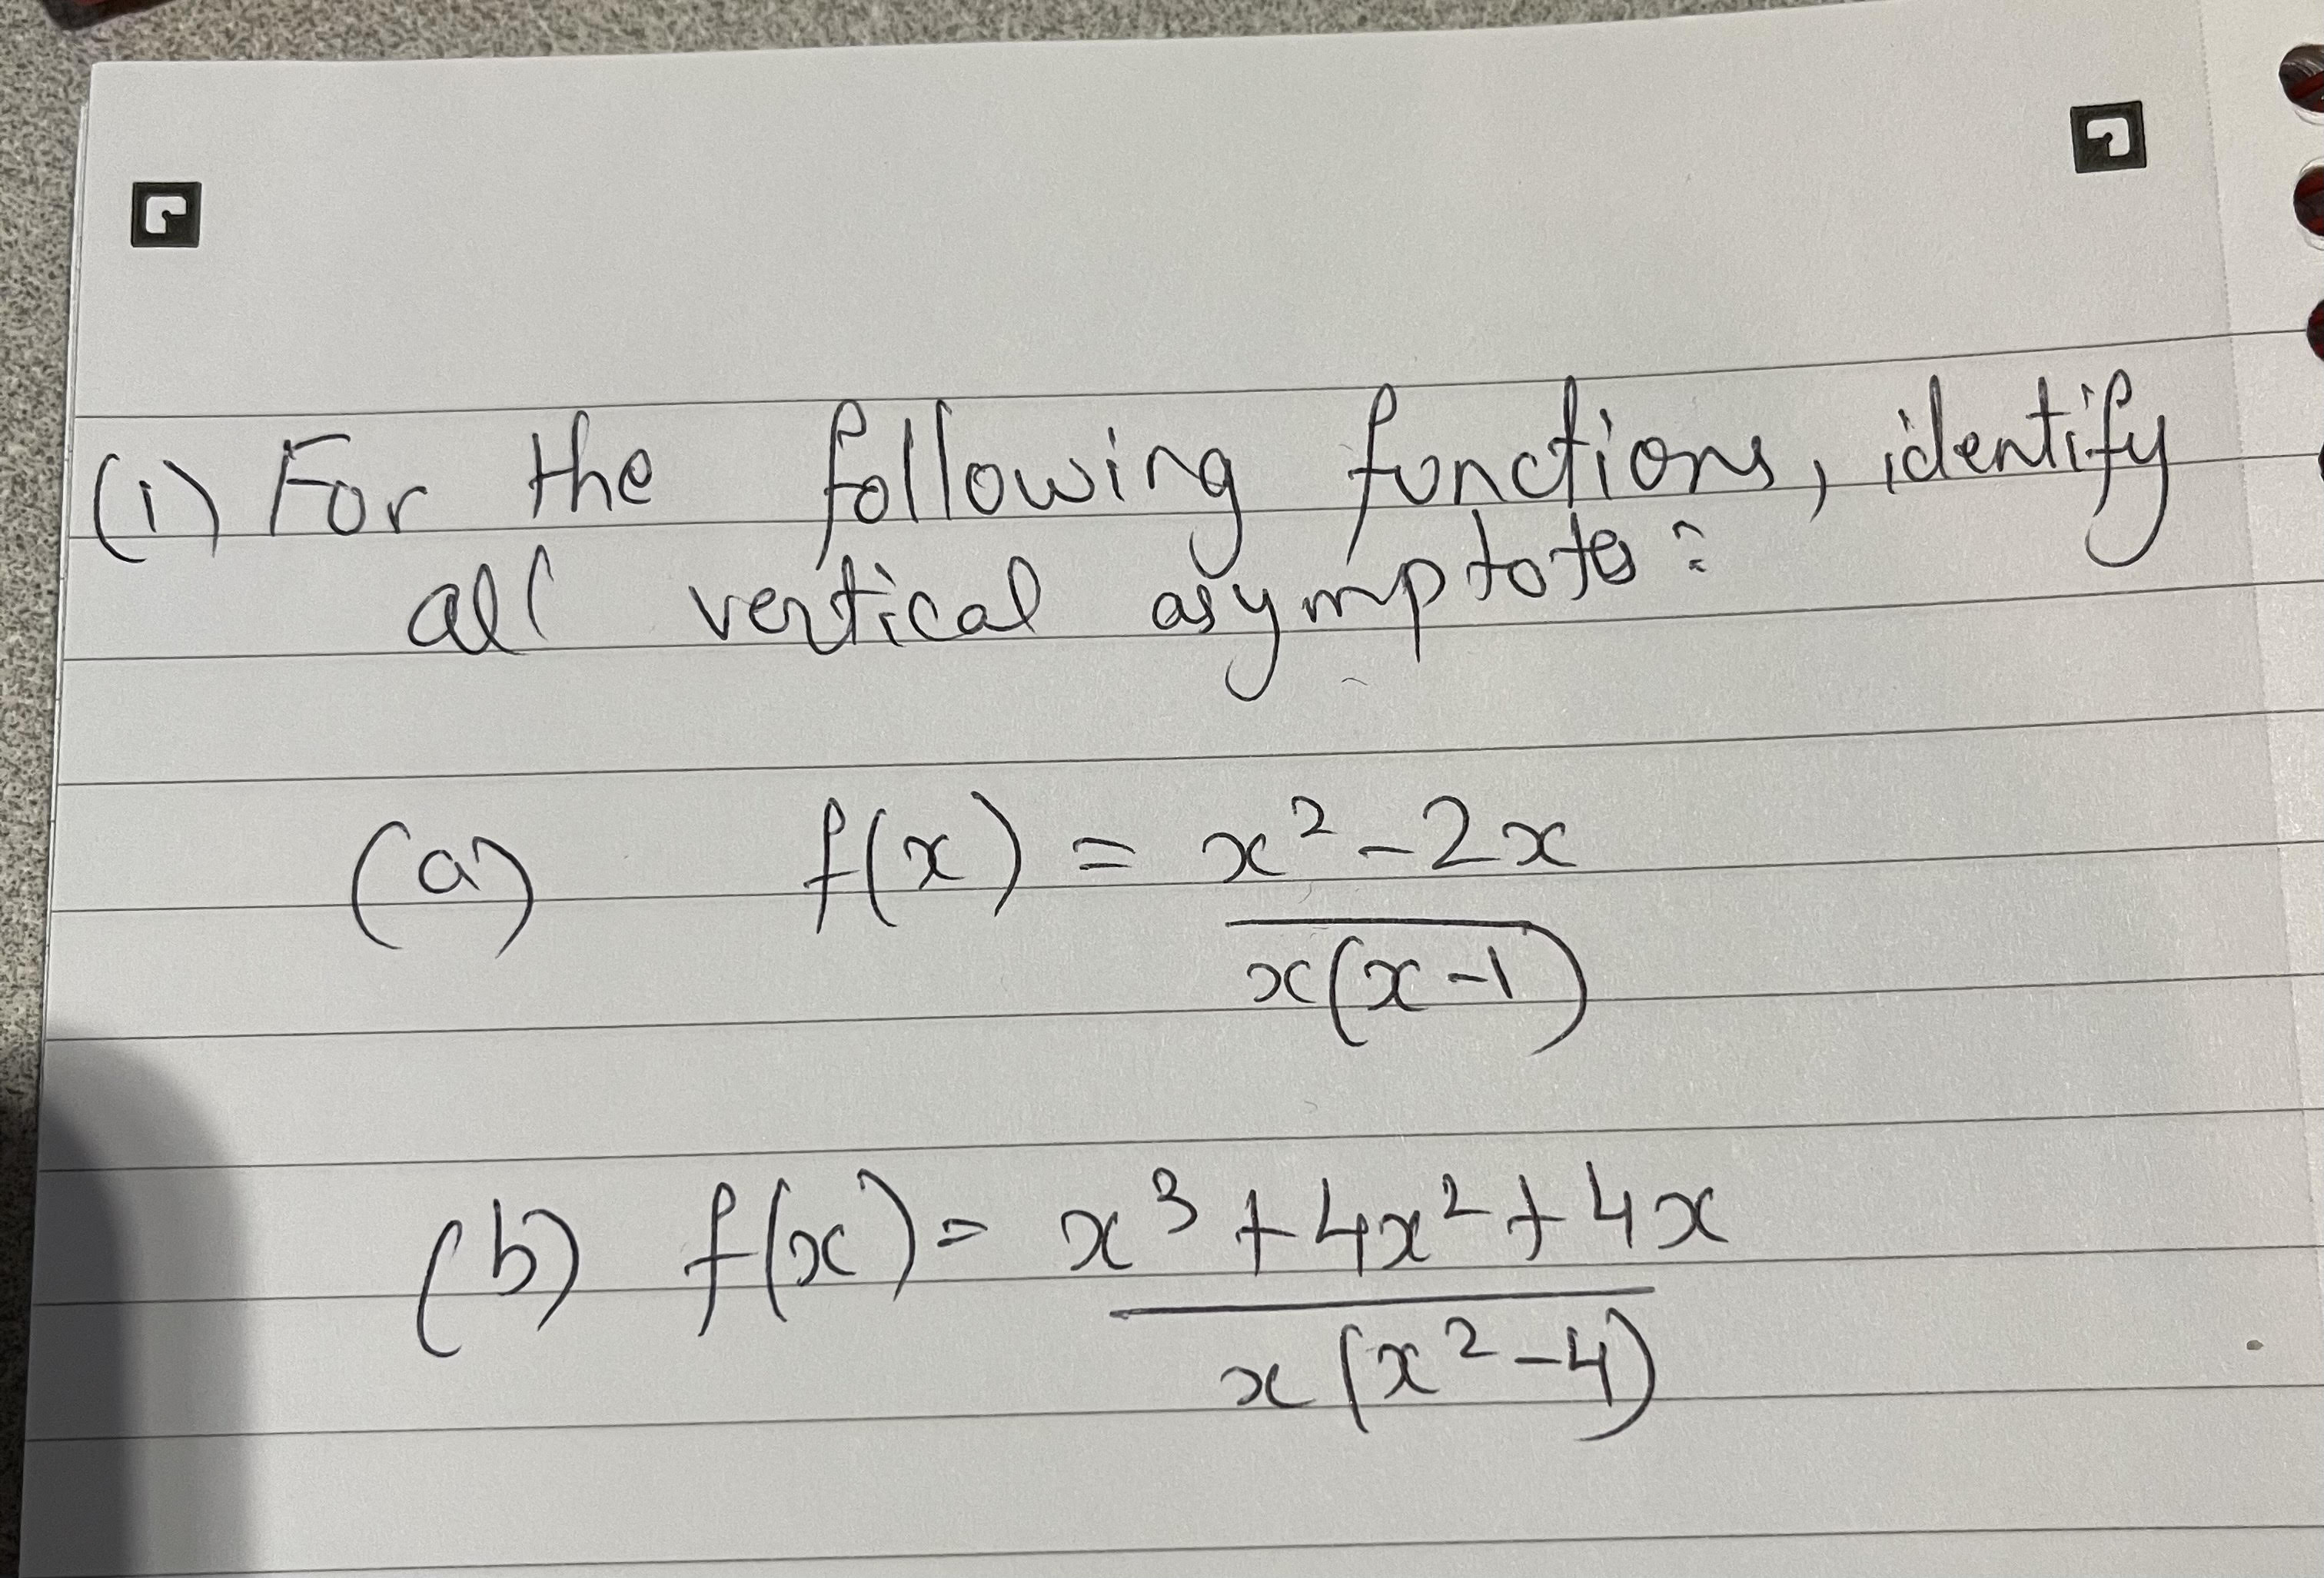 (1) For the following functions, identify
all vertical asymptotes:
(a) f(x) = x² - 2x
x(x-1)
(b) f(x) = x³ + 4x² + 4x
x(x² - 4)